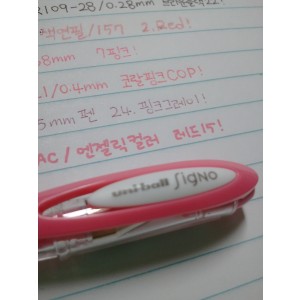 R109-28/0.28mm 브라운블랙22!
색연필/157 2.Red!
38mm 7핑크!
1/0.4mm 코랄핑크COP!
5mm 펜 24. 핑크그레이!
AC/엔젤릭컬러 레드15!
uni-ball Signo